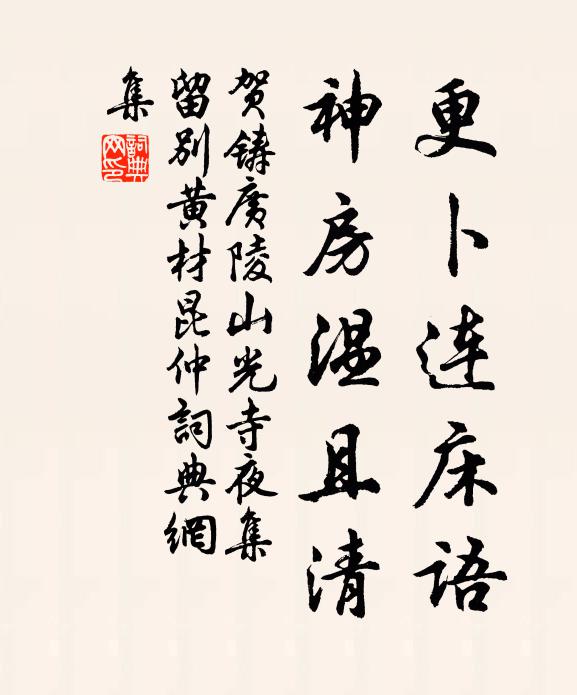 更卜连床语
神房温且清
贺鑄廣陵山光寺夜集
留别黄材昆仲詞典網
集
詞典
网印